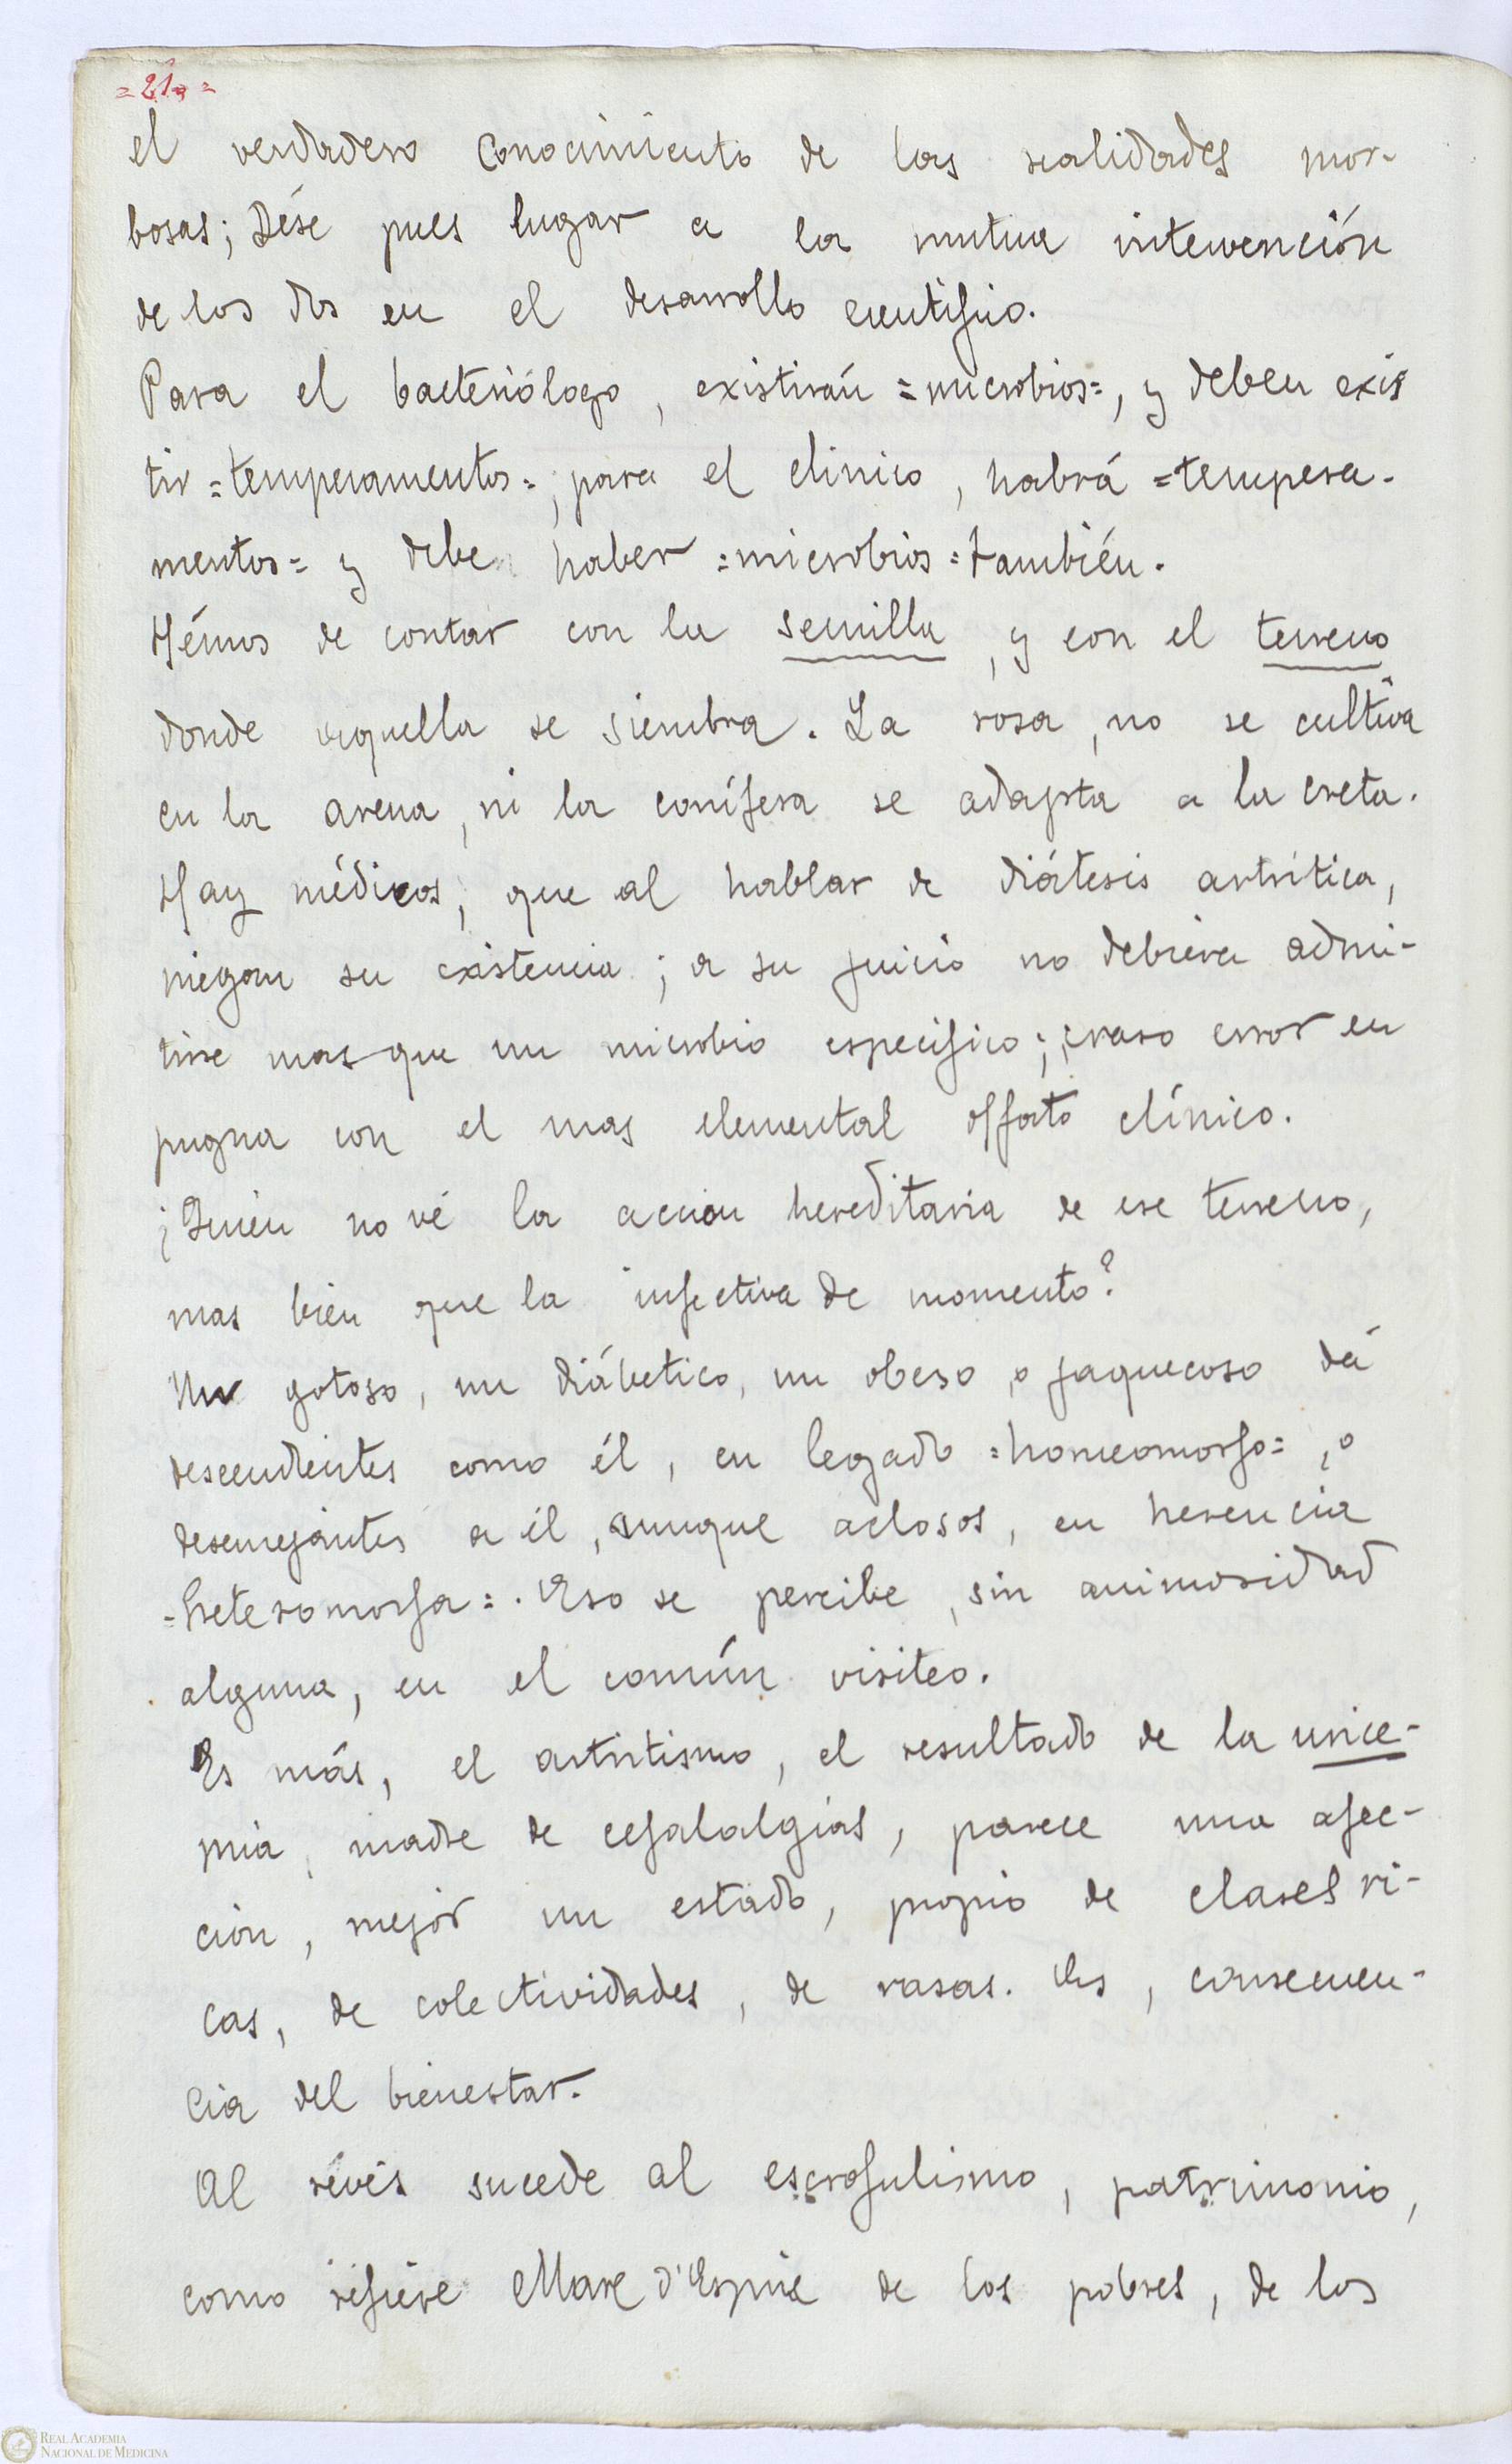 =21=
el verdadero conocimiento de las realidades mor-
bosas; Dése pues lugar a la mutua intervención
de los dos en el desarrollo cientifico.
Para el bacteriólogo, existirán =microbios=, y deben exis
tir =temperamentos=; para el clinico, habrá =tempera-
mentos= y debe haber =microbios= también.
Hémos de contar con la semilla, y con el terreno
donde aquella se siembra. La rosa, no se cultiva
en la arena, ni la conífera se adapta a la creta.
Hay médicos, que al hablar de diátesis artrítica,
niegan su existencia; a su juicio no debiera admi-
tirse mas que un microbio especifico; craso error en
pugna con el mas elemental olfato clínico.
¡Quien no vé la accion hereditaria de ese terreno,
mas bien que la infectiva de momento?
Un gotoso, un diábetico, un obeso, o jaquecoso dá
descendientes como él, en legado =homeomorfo=, o
desemejantes a él, aunque aclosos, en herencia
=heteromorfa=. Eso se percibe, sin animosidad
alguna, en el común visiteo.
Es más, el artritismo, el resultado de la urice-
mia, madre de cefalalgias, parece una afec-
cion, mejor un estado, propio de clases ri-
cas, de colectividades, de rasas. Es, consecuen-
cia del bienestar.
Al revés sucede al escrofulismo, patrimonio,
como refiere Marc d'Espine de los pobres, de los
REAL ACADEMIA
NACIONAL DE MEDICINA